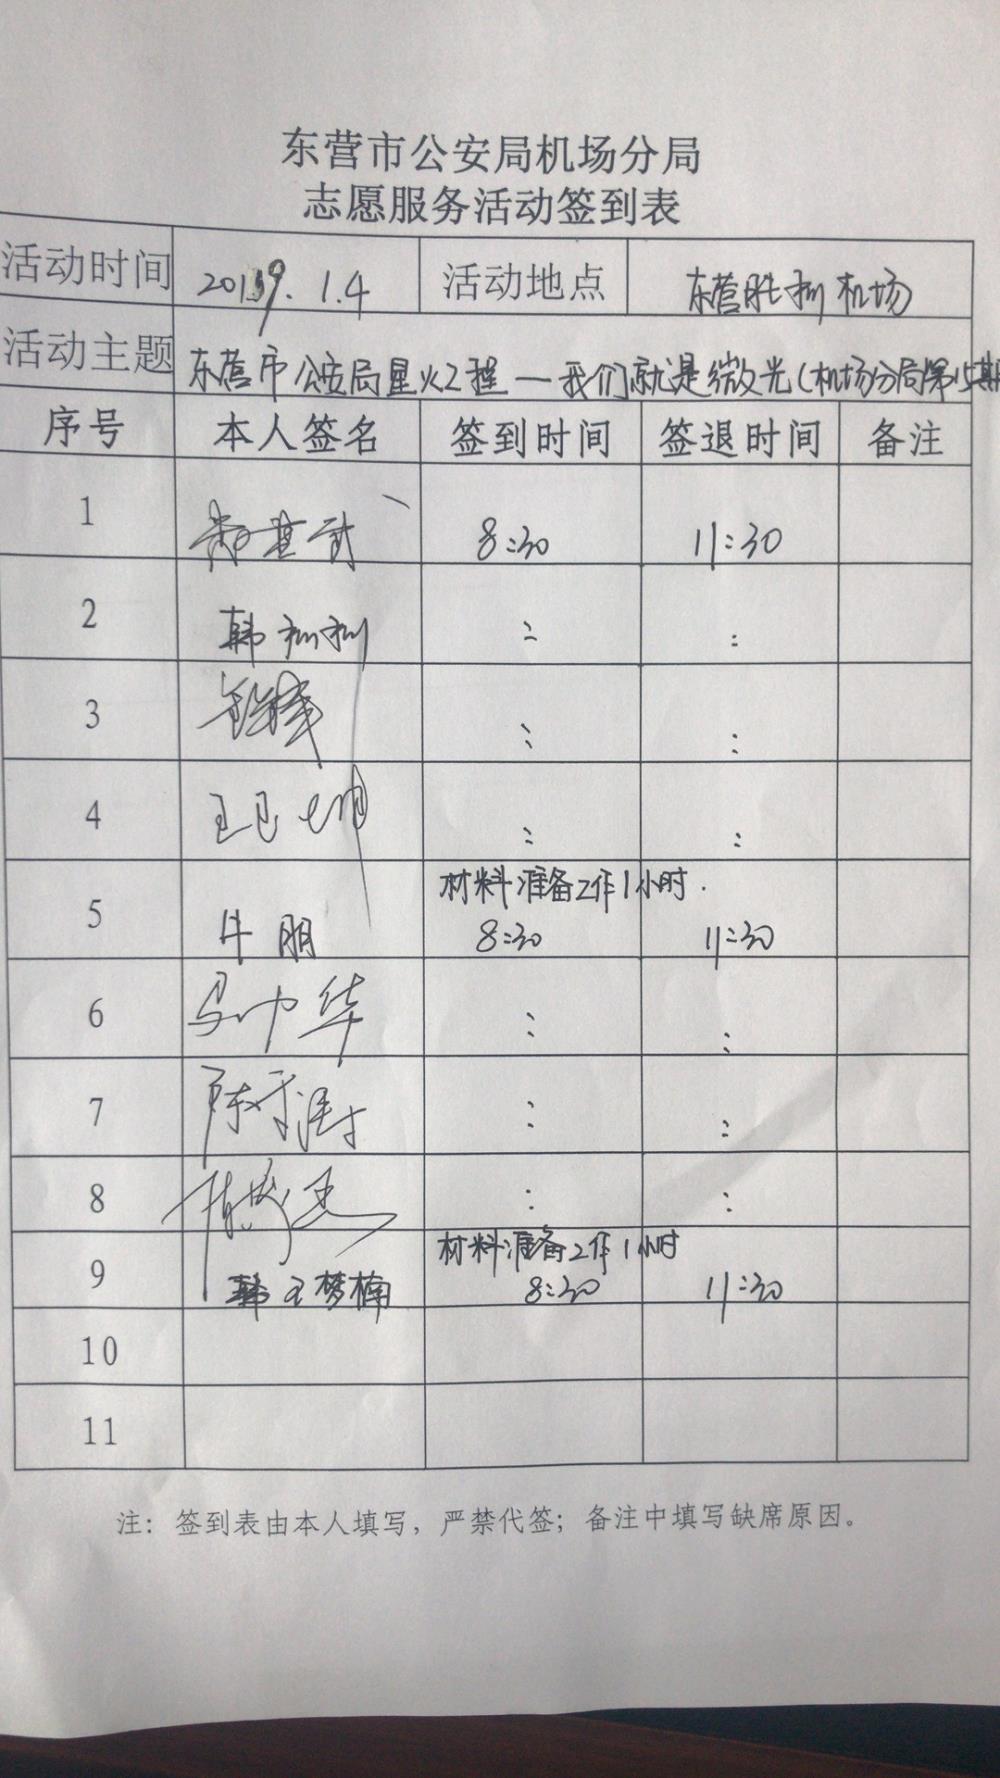 东营市公安局机场分局
志愿服务活动签到表
活动时间 2019.1.4 活动地点 东营胜利机场
活动主题 东营市公安局星火工程—我们就是微光(机场分局第15期
序号 本人签名 签到时间 签退时间 备注
1 8:30 11:30
2 韩利利 : :
3 : :
4 : :
材料准备工作1小时.
5 牛朋 8:30 11:30
6 马中华 : :
7 : :
8 : :
材料准备工作1小时
9 王梦楠 8:30 11:30
10
11
注：签到表由本人填写，严禁代签；备注中填写缺席原因。